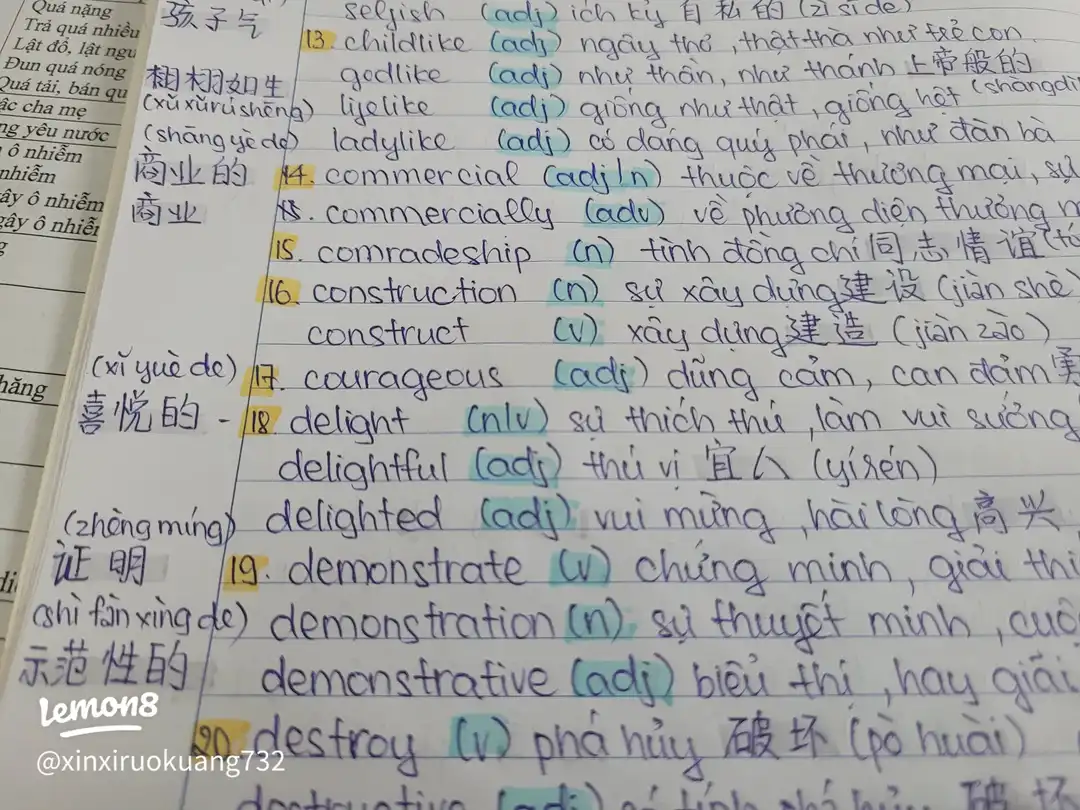 Quá nặng
Trả quá nhiều
Lật đổ, lật ngu
Đun quá nóng
Quá tải, bán qu
ậc cha mẹ
ng yêu nước
ô nhiễm
nhiễm
ây ô nhiễm
gây ô nhiễi
hăng
孩子气
selfish (adj) ích kỷ 自私的 (zì sī de)
13. childlike (adj) ngây thơ, thật thà như trẻ con.
godlike (adj) như thần, như thánh 上帝般的
(shàngdì
栩栩如生
(xǔ xǔ rú shēng) lifelike (adj) giống như thật, giống hệt
(shāng yè de) ladylike (adj) có dáng quý phái, như đàn bà
商业的 14. commercial (adj/n) thuộc về thương mại, sự
商业 15. commercially (adv) về phương diện thương m
15. comradeship (n) tình đồng chí 同志情谊 (tó
16. construction (n) sự xây dựng 建设 (jiàn shè)
construct (v) xây dựng 建造 (jiàn zào)
(xǐ yuè de) 17. courageous (adj) dũng cảm, can đảm 勇
喜悦的 - 18 delight (n/v) sự thích thú, làm vui sướng
delightful (adj) thú vị 宜人 (yí rén)
delighted (adj) vui mừng, hài lòng 高兴
(zhèng míng)
证明 19. demonstrate (v) chứng minh, giải thí
(shì fàn xìng de) demonstration (n) sự thuyết minh, cuộ
示范性的 demonstrative (adj) biểu thị, hay giải
20. destroy (v) phá hủy 破坏 (pò huài)
destructive (adj) có tính phá hủy 破坏
lemon8
@xinxiruokuang732